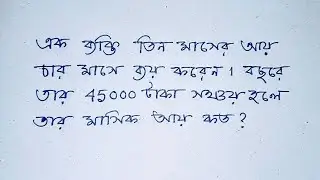 এক ব্যক্তি তিন মাসের আয়
চার মাসে ব্যয় করেন। বছরে
তার 45000 টাকা সঞ্চয় হলে
তার মাসিক আয় কত?